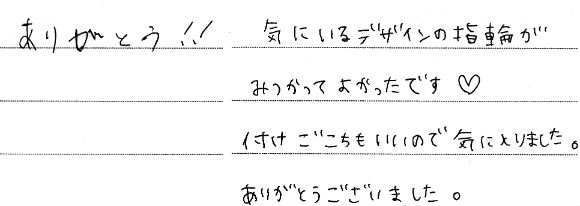 ありがとう!!
気にいるデザインの指輪が
みつかってよかったです♡
付けごこちもいいので気にとりました。
ありがとうございました。